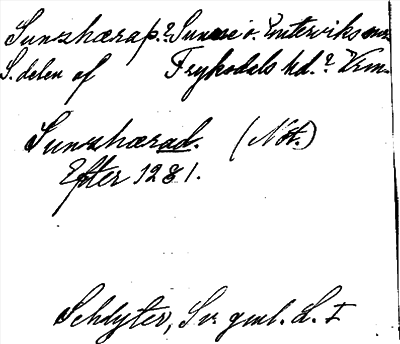 Sunzhærap? Sunne o. Emterviks snr
S. delen af Fryksdals hd.? Vrm.
Sunzhærad. (Not.)
Efter 1281.
Schlyter, Sv. gml. L. I